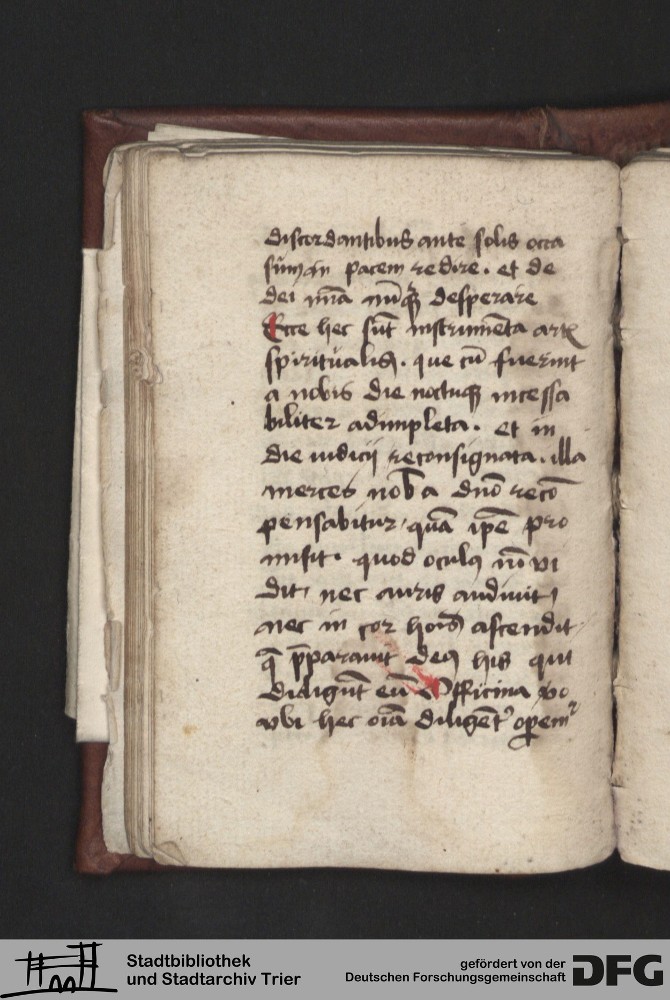 discordantibus ante solis occa
sum in pacem redire. et de
dei mīa nūq̄ desperare
Ecce hec sūt instrumēta artꝭ
spiritualis. que cū fuerint
a nobis die noctuqꝫ incessa
biliter adimpleta. et in
die iudicij reconsignata. illa
merces nob̄ a dn̄o recō
pensabitur, quā ip̄e pro
misit. quod oculꝰ nō vi
dit, nec auris audiuit,
nec in cor hoīs ascendit,
q̄ p̄parauit deꝰ his qui
diligūt eū Officina vo
vbi hec oīa diligēt᾿ opem᾿
Stadtbibliothek
und Stadtarchiv Trier
gefördert von der
Deutschen Forschungsgemeinschaft
DFG